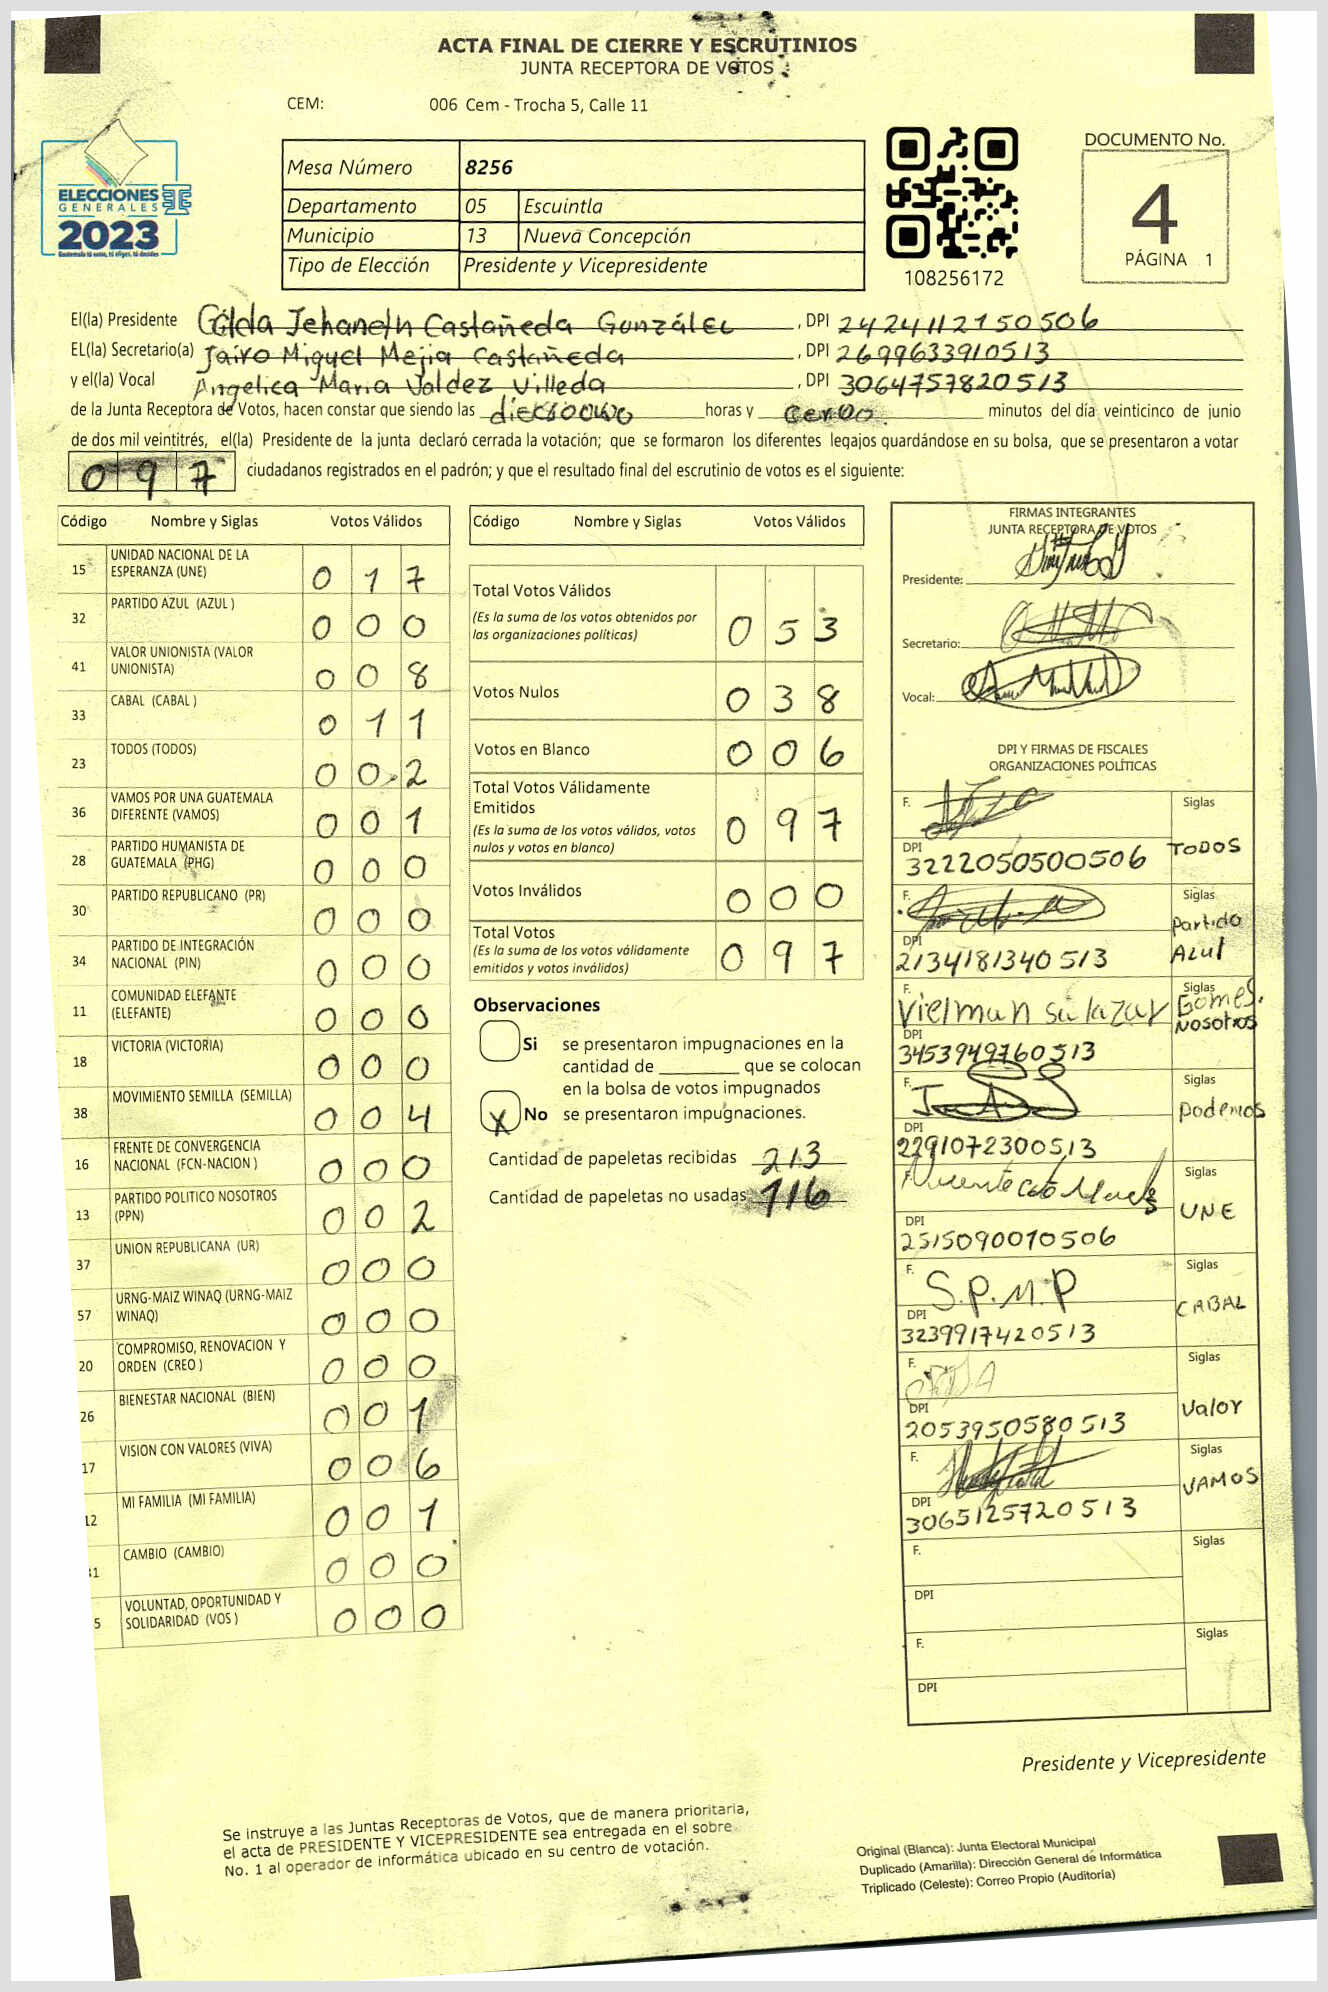 ACTA FINAL DE CIERRE Y ESCRUTINIOS
JUNTA RECEPTORA DE VOTOS
CEM: 006 Cem - Trocha 5, Calle 11
ELECCIONES
GENERALES
2023
Mesa Número 8256
Departamento 05 Escuintla
Municipio 13 Nueva Concepción
Tipo de Elección Presidente y Vicepresidente
108256172
DOCUMENTO No.
4
PÁGINA 1
El(la) Presidente Gilda Jehaneth Castañeda Gunzález, DPI 2424112150506
EL(la) Secretario(a) Jairo Miguel Mejia Castañeda, DPI 2699633910513
y el(la) Vocal Angelica Maria Valdez Villeda, DPI 3064757820513
de la Junta Receptora de Votos, hacen constar que siendo las dieciocho horas y cero minutos del día veinticinco de junio
de dos mil veintitrés, el(la) Presidente de la junta declaró cerrada la votación; que se formaron los diferentes legajos guardándose en su bolsa, que se presentaron a votar
097 ciudadanos registrados en el padrón; y que el resultado final del escrutinio de votos es el siguiente:
Código Nombre y Siglas Votos Válidos
15 UNIDAD NACIONAL DE LA ESPERANZA (UNE) 017
32 PARTIDO AZUL (AZUL ) 000
41 VALOR UNIONISTA (VALOR UNIONISTA) 008
33 CABAL (CABAL ) 011
23 TODOS (TODOS) 002
36 VAMOS POR UNA GUATEMALA DIFERENTE (VAMOS) 001
28 PARTIDO HUMANISTA DE GUATEMALA (PHG) 000
30 PARTIDO REPUBLICANO (PR) 000
34 PARTIDO DE INTEGRACIÓN NACIONAL (PIN) 000
11 COMUNIDAD ELEFANTE (ELEFANTE) 000
18 VICTORIA (VICTORIA) 000
38 MOVIMIENTO SEMILLA (SEMILLA) 004
16 FRENTE DE CONVERGENCIA NACIONAL (FCN-NACION ) 000
13 PARTIDO POLITICO NOSOTROS (PPN) 002
37 UNION REPUBLICANA (UR) 000
57 URNG-MAIZ WINAQ (URNG-MAIZ WINAQ) 000
20 COMPROMISO, RENOVACION Y ORDEN (CREO ) 000
26 BIENESTAR NACIONAL (BIEN) 001
17 VISION CON VALORES (VIVA) 006
12 MI FAMILIA (MI FAMILIA) 001
1 CAMBIO (CAMBIO) 000
5 VOLUNTAD, OPORTUNIDAD Y SOLIDARIDAD (VOS ) 000
Código Nombre y Siglas Votos Válidos
Total Votos Válidos 053
(Es la suma de los votos obtenidos por las organizaciones políticas)
Votos Nulos 038
Votos en Blanco 006
Total Votos Válidamente Emitidos 097
(Es la suma de los votos válidos, votos nulos y votos en blanco)
Votos Inválidos 000
Total Votos 097
(Es la suma de los votos válidamente emitidos y votos inválidos)
Observaciones
Si se presentaron impugnaciones en la
cantidad de ________ que se colocan
en la bolsa de votos impugnados
X No se presentaron impugnaciones.
Cantidad de papeletas recibidas 213
Cantidad de papeletas no usadas 116
FIRMAS INTEGRANTES
JUNTA RECEPTORA DE VOTOS
Presidente:
Secretario:
Vocal:
DPI Y FIRMAS DE FISCALES
ORGANIZACIONES POLÍTICAS
F. Siglas
DPI 3222050500506 TODOS
F. Siglas Partido Azul
DPI 2134181340513
F. Vielman Salazar Gomes. Siglas Nosotros
DPI 3453949760513
F. Siglas Podemos
DPI 2291072300513
F. Siglas UNE
DPI 2515090010506
F. S.P.M.P Siglas CABAL
DPI 3239917420513
F. Siglas Valor
DPI 2053950580513
F. Siglas VAMOS
DPI 3065125720513
F. Siglas
DPI
F. Siglas
DPI
Presidente y Vicepresidente
Se instruye a las Juntas Receptoras de Votos, que de manera prioritaria,
el acta de PRESIDENTE Y VICEPRESIDENTE sea entregada en el sobre
No. 1 al operador de informática ubicado en su centro de votación.
Original (Blanca): Junta Electoral Municipal
Duplicado (Amarilla): Dirección General de Informática
Triplicado (Celeste): Correo Propio (Auditoría)